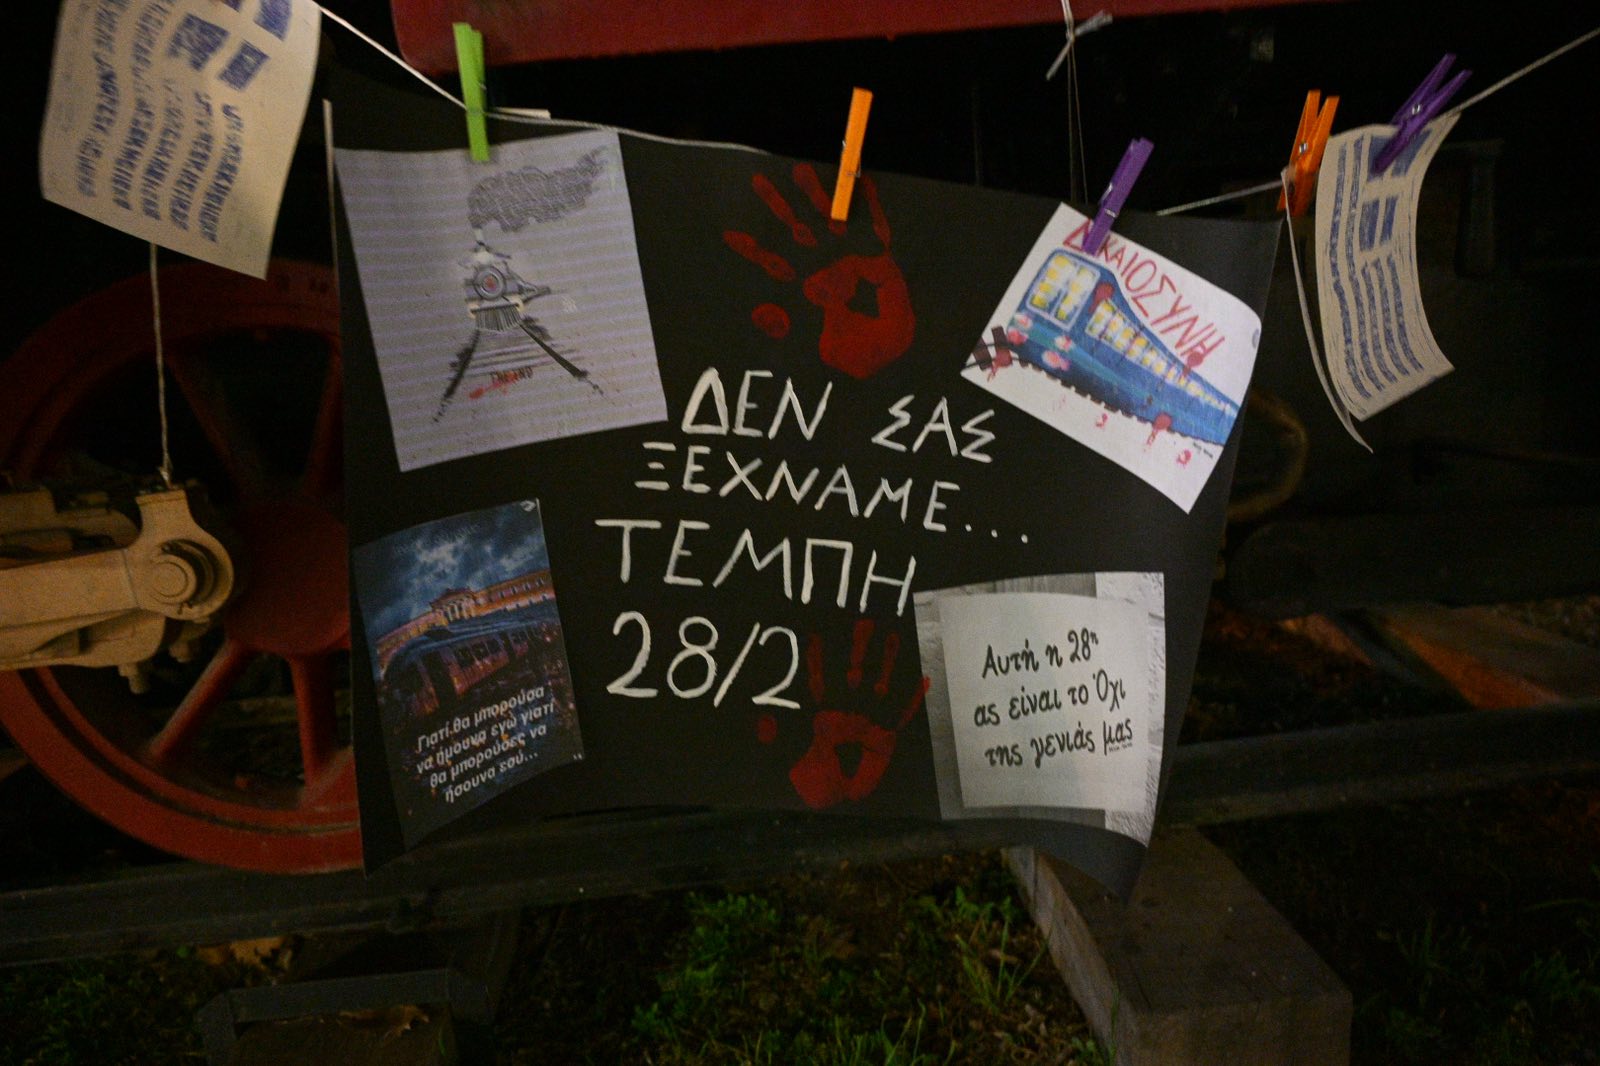 THE END
ΔΙΚΑΙΟΣΥΝΗ
ΔΕΝ ΣΑΣ
ΞΕΧΝΑΜΕ...
ΤΕΜΠΗ
28/2
Γιατί θα μπορούσα
να ήμουνα εγώ γιατί
θα μπορούσες να
ήσουνα εσύ...
Αυτή η 28η
ας είναι το Όχι
της γενιάς μας